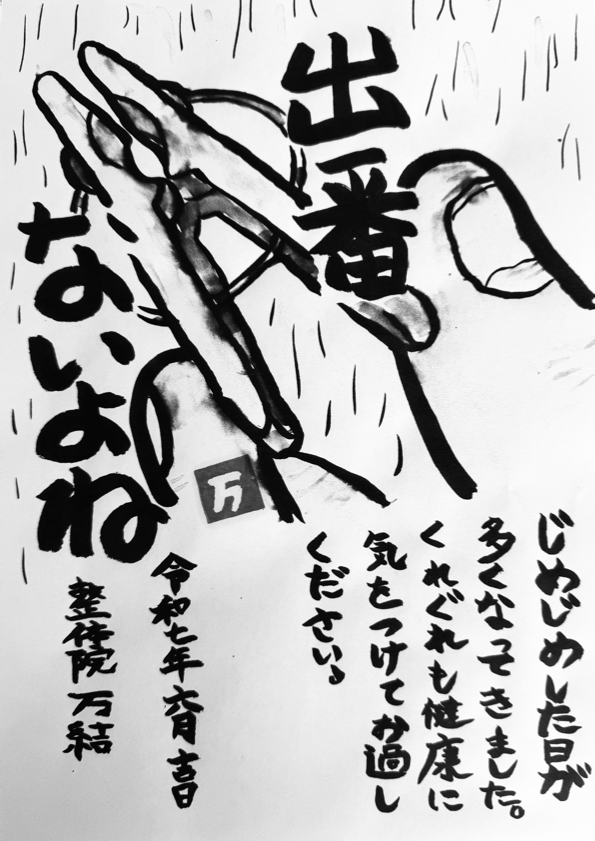 出番
ないよね
じめじめした日が
多くなってきました。
くれぐれも健康に
気をつけてお過し
ください。
令和七年六月吉日
整体院 万結
万